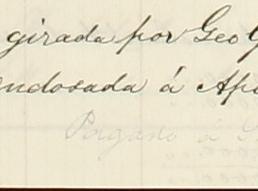 girada por Geo
endosada á Apo
Pagado á